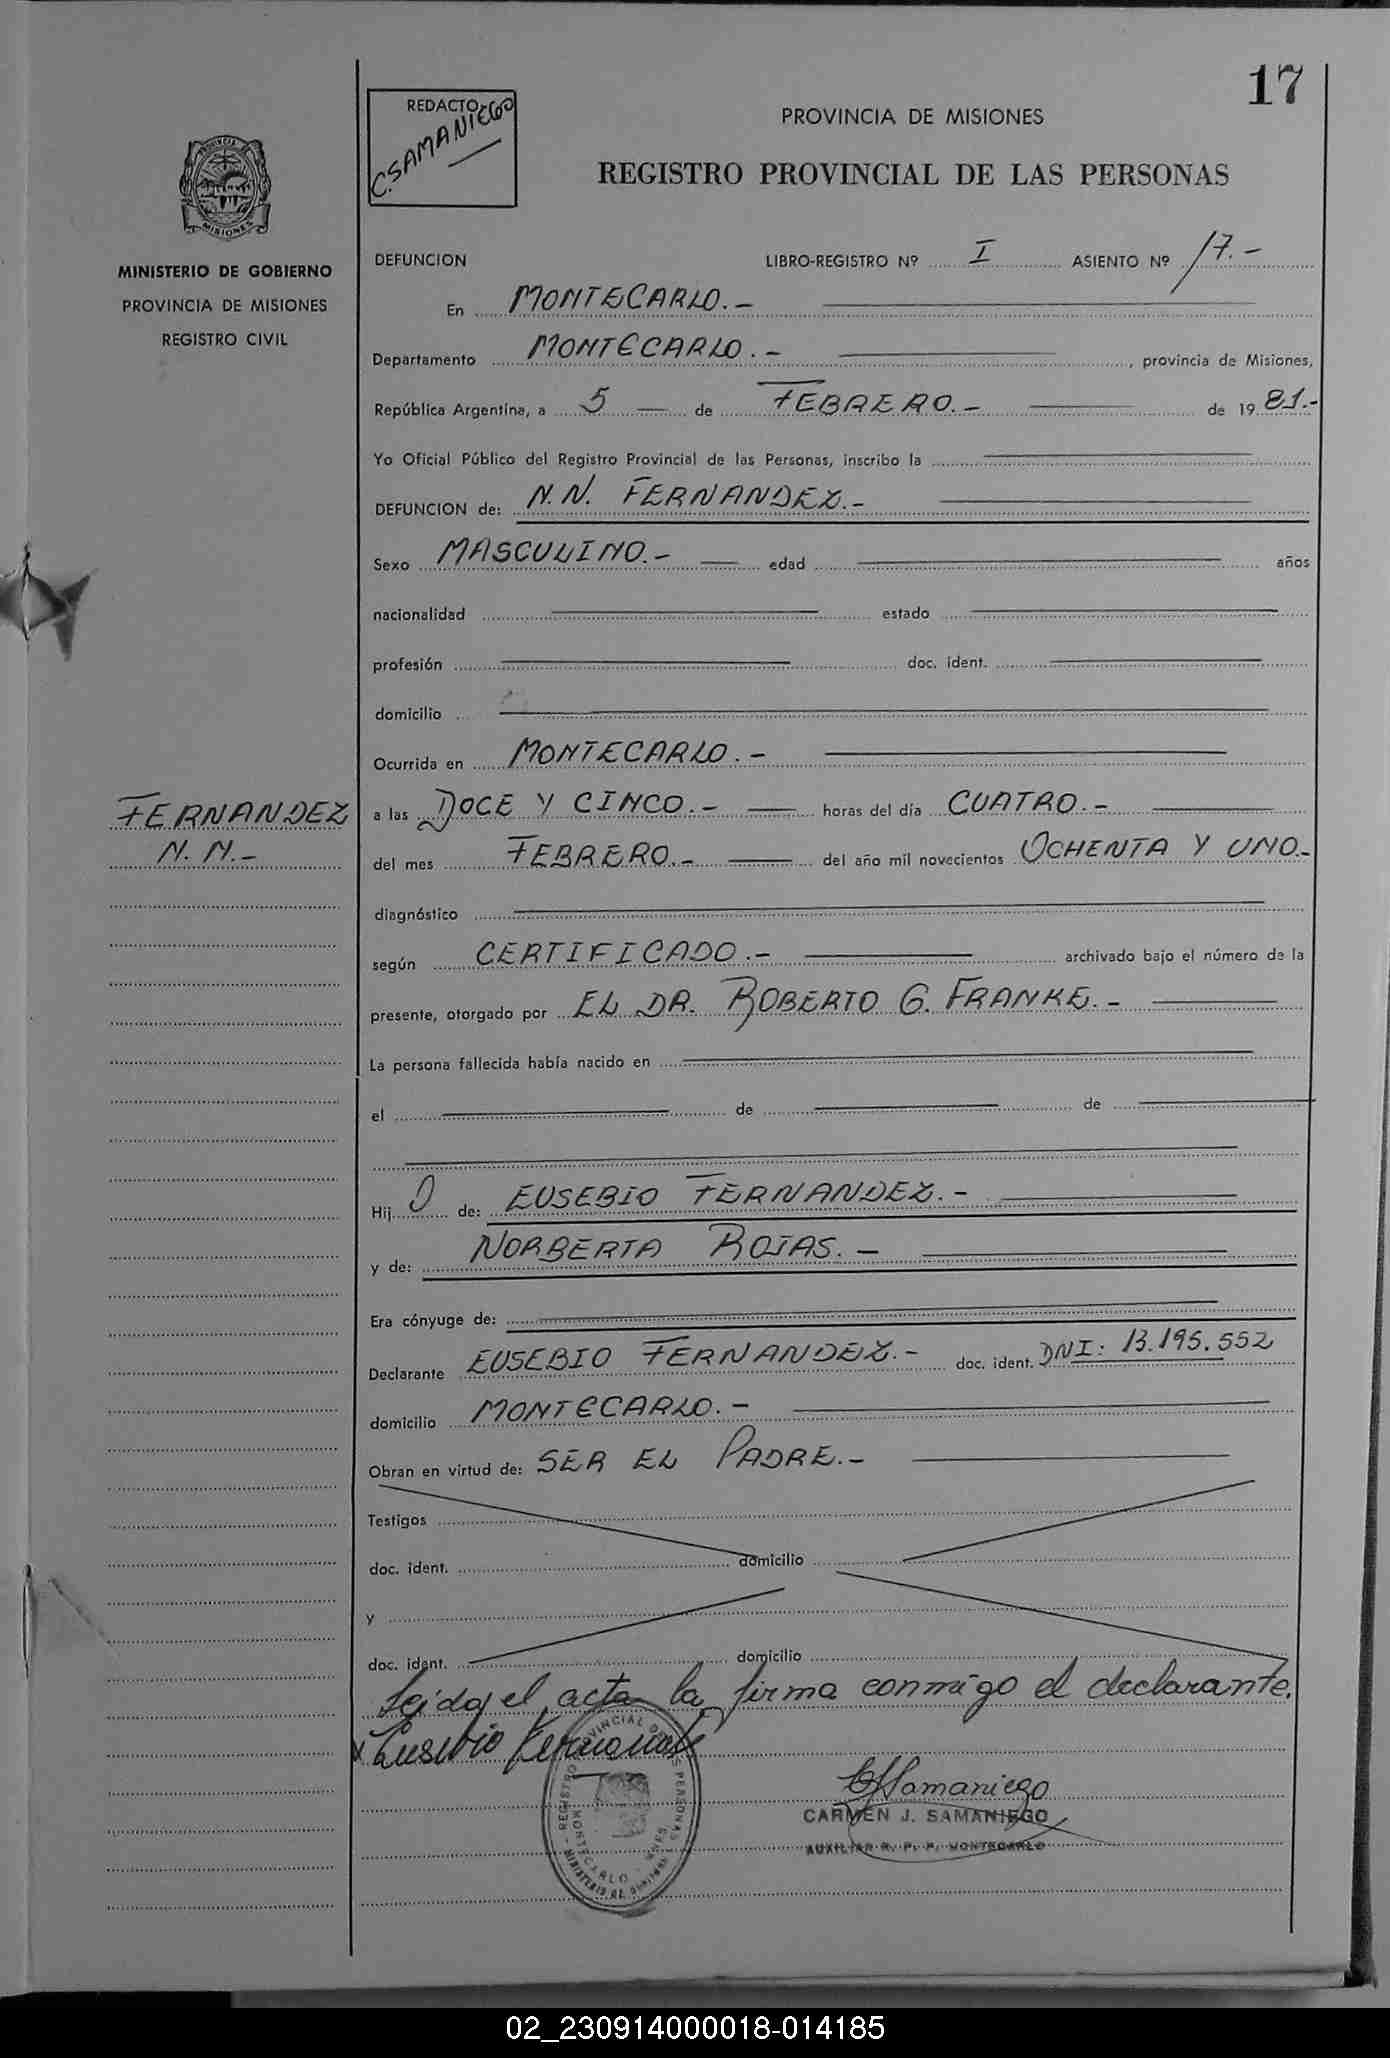 17
REDACTO
C. SAMANIEGO
PROVINCIA DE MISIONES
REGISTRO PROVINCIAL DE LAS PERSONAS
PROVINCIA DE
MISIONES
MINISTERIO DE GOBIERNO
PROVINCIA DE MISIONES
REGISTRO CIVIL
DEFUNCION LIBRO-REGISTRO Nº I ASIENTO Nº 17.-
En MONTECARLO.-
Departamento MONTECARLO.- , provincia de Misiones,
República Argentina, a 5 — de FEBRERO.- de 1981.-
Yo Oficial Público del Registro Provincial de las Personas, inscribo la
DEFUNCION de: N.N. FERNANDEZ.-
Sexo MASCULINO.- edad años
nacionalidad estado
profesión doc. ident.
domicilio
Ocurrida en MONTECARLO.-
FERNANDEZ
N.N.-
a las DOCE Y CINCO.- horas del día CUATRO.-
del mes FEBRERO.- del año mil novecientos OCHENTA Y UNO.-
diagnóstico
según CERTIFICADO.- archivado bajo el número de la
presente, otorgado por EL DR. ROBERTO G. FRANKE.-
La persona fallecida había nacido en
el de de
Hij O de: EUSEBIO FERNANDEZ.-
y de: NORBERTA ROJAS.-
Era cónyuge de:
Declarante EUSEBIO FERNANDEZ.- doc. ident. DNI: 13.195.552
domicilio MONTECARLO.-
Obran en virtud de: SER EL PADRE.-
Testigos
doc. ident. domicilio
y
doc. ident. domicilio
Leida el acta la firma conmigo el declarante.
x Eusebio Fernandez
REGISTRO PROVINCIAL DE LAS PERSONAS
MONTECARLO - MNES
CSamaniego
CARMEN J. SAMANIEGO
AUXILIAR R. P. P. MONTECARLO
02_230914000018-014185